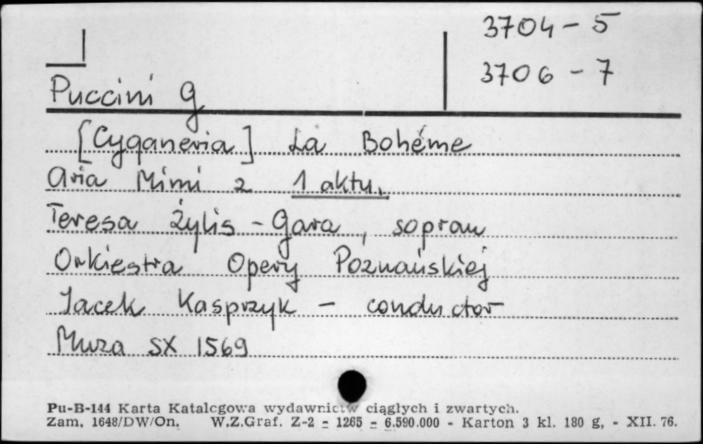 3704 - 5
3706 - 7
Puccini G
[Cyganeria] La Bohéme
Aria Mimi z 1 aktu.
Teresa Żylis - Gara, sopran
Orkiestra Opery Poznańskiej
Jacek Kasprzyk - conductor
Muza SX 1569
Pu-B-144 Karta Katalogowa wydawnictw ciągłych i zwartych.
Zam. 1648/DW/On. W.Z.Graf. Z-2 = 1265 = 6.590.000 - Karton 3 kl. 180 g, - XII. 76.